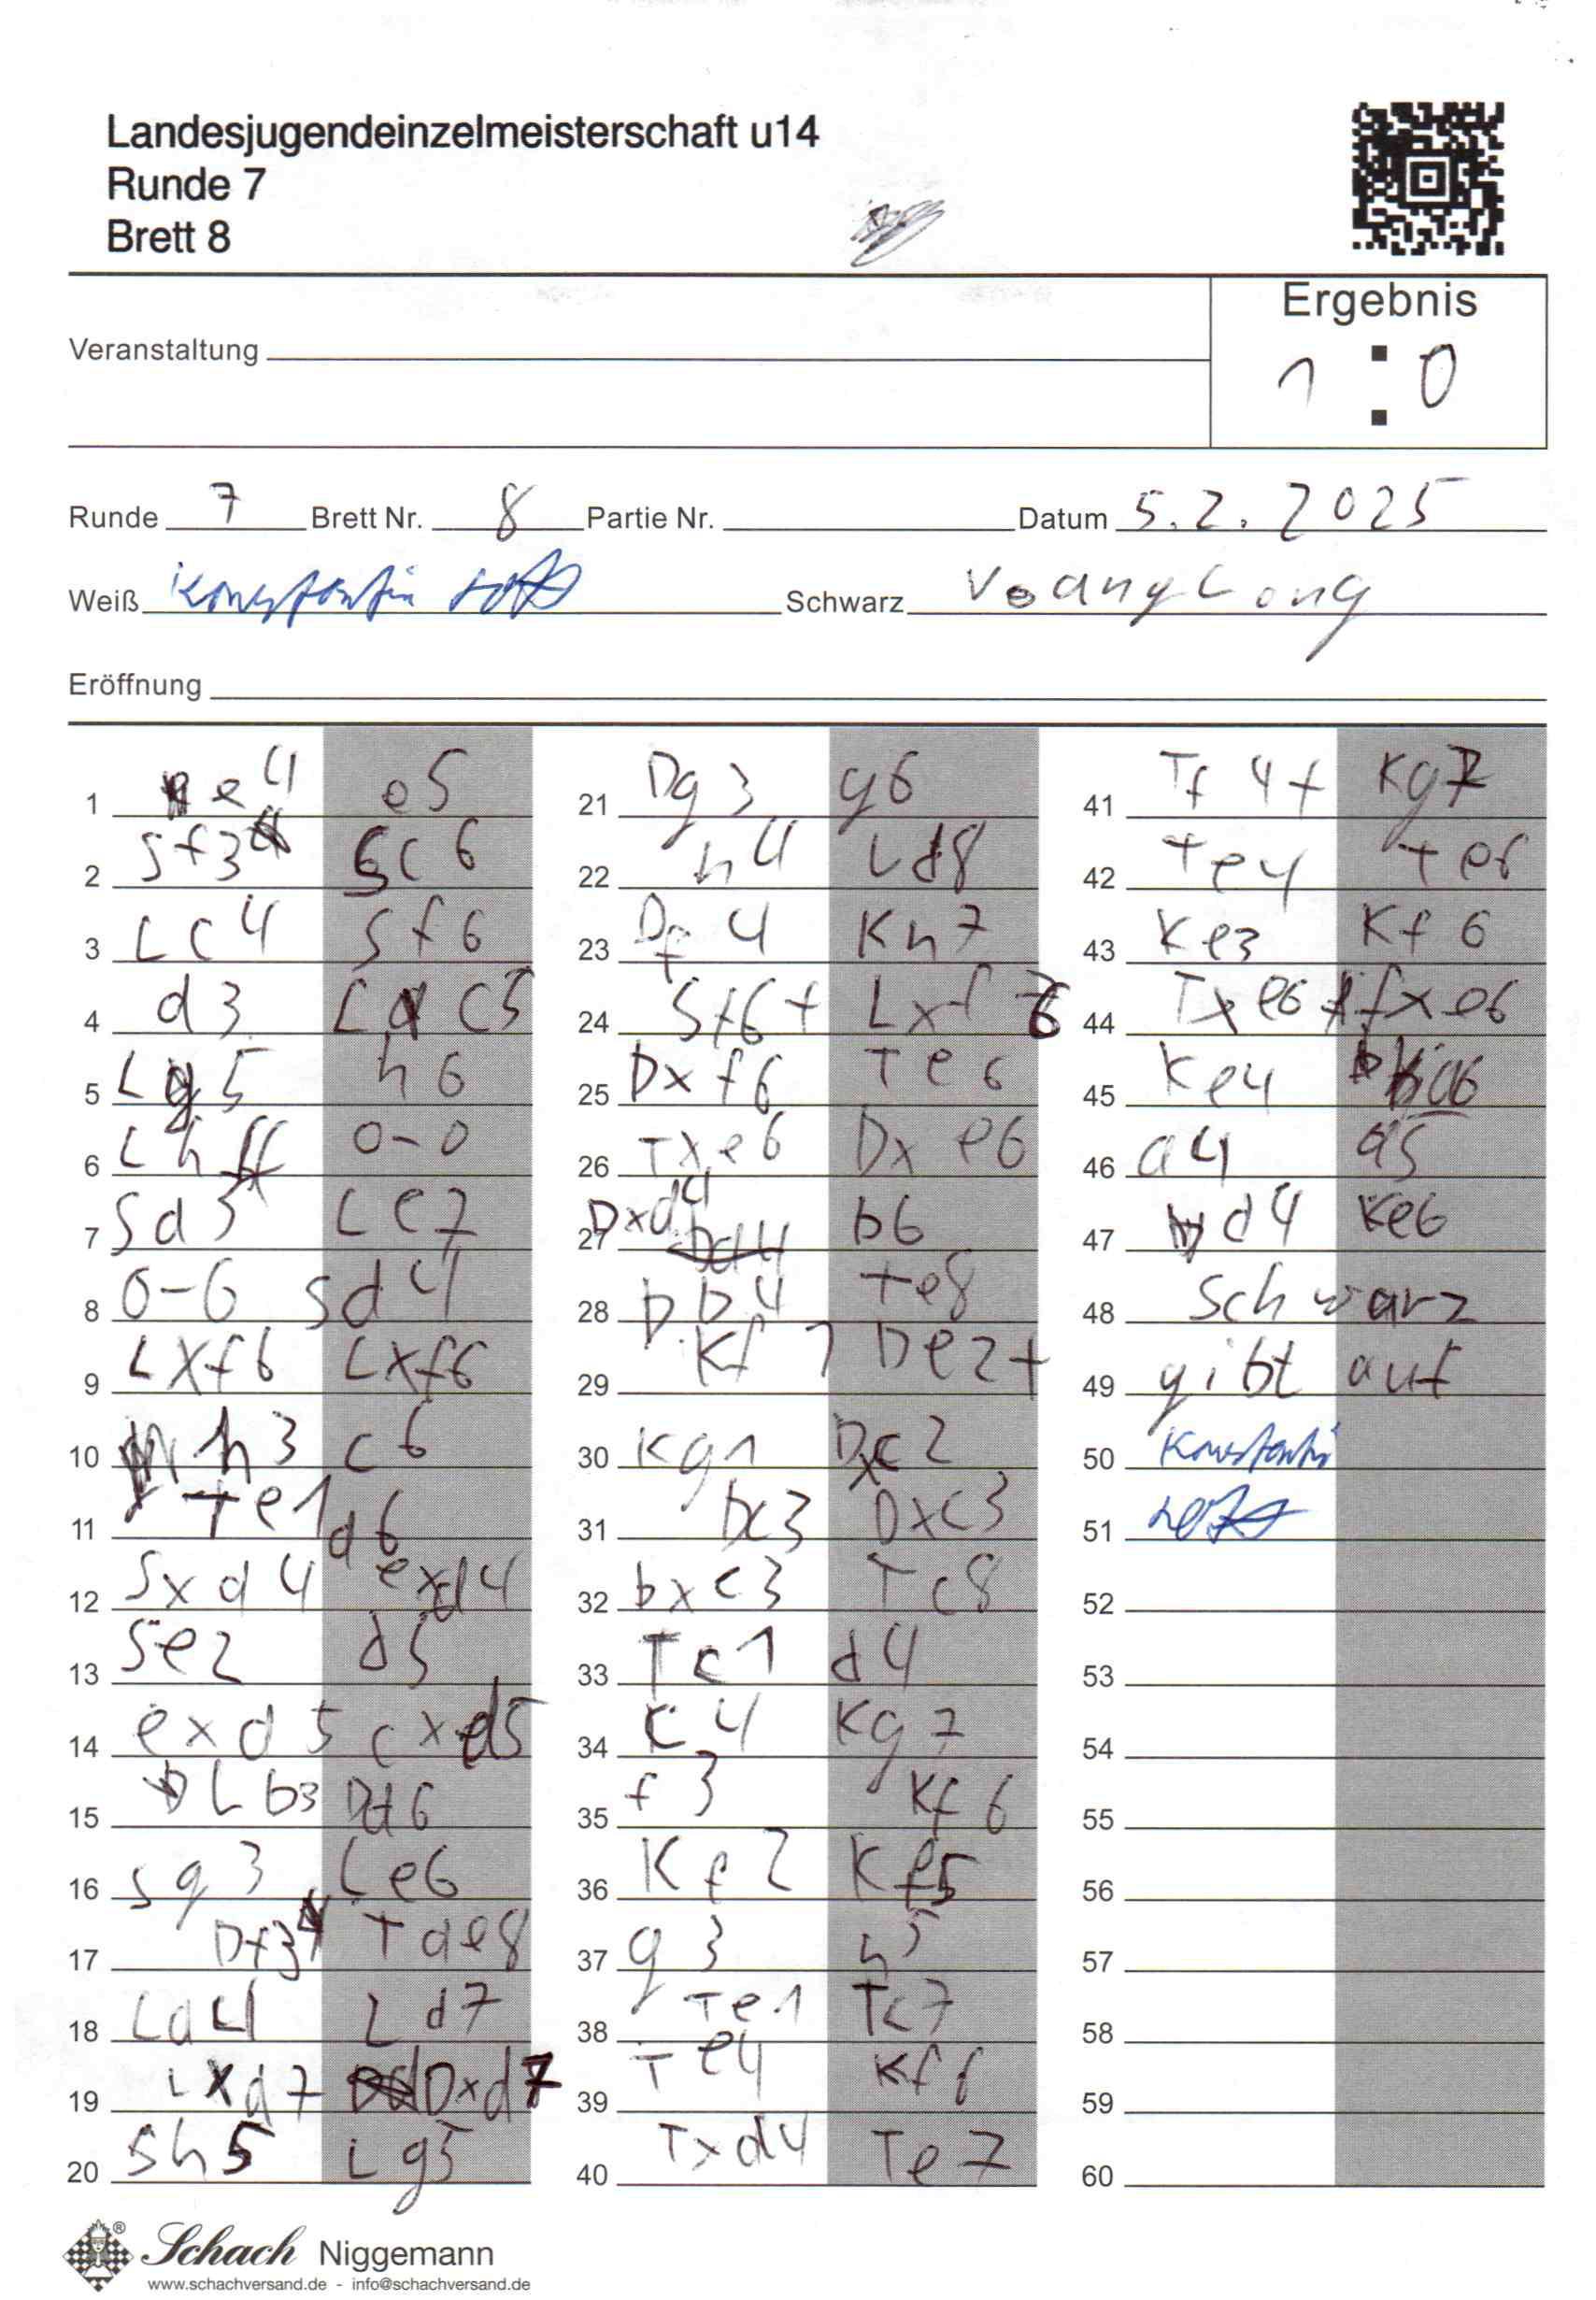 Landesjugendeinzelmeisterschaft u14
Runde 7
Brett 8
Ergebnis
1 : 0
Veranstaltung
Runde 7 Brett Nr. 8 Partie Nr. Datum 5.2.2025
Weiß Konstantin Schwarz
Eröffnung
1 e4 e5
2 Sf3 Sc6
3 Lc4 Sf6
4 d3 Lc5
5 Lg5 h6
6 Lh4 0-0
7 Sd3 Le7
8 0-0 Sd4
9 Lxf6 Lxf6
10 h3 c6
11 Te1 d6
12 Sxd4 exd4
13 Se2 d5
14 exd5 cxd5
15 Lb3 Dd6
16 Sg3 Le6
17 Df3 Tae8
18 La4 Ld7
19 Lxd7 Dxd7
20 Sh5 Lg5
21 Dg3 g6
22 h4 Ld8
23 Df4 Kh7
24 Sf6+ Lxf6
25 Dxf6 Te6
26 Txe6 Dxe6
27 Dxd4 b6
28 Db4 Te8
29 Kf1 De2+
30 Kg1 Dxc2
31 Dc3 Dxc3
32 bxc3 Tc8
33 Tc1 d4
34 c4 Kg7
35 f3 Kf6
36 Kf2 Kf5
37 g3 h5
38 Te1 Tc7
39 Te4 Kf6
40 Txd4 Te7
41 Tf4+ Kg7
42 Te4 Te6
43 Ke3 Kf6
44 Txe6+ fxe6
45 Ke4 a6
46 a4 a5
47 d4 Ke6
48 Schwarz
49 gibt auf
50 Konstantin
51
52
53
54
55
56
57
58
59
60
Schach Niggemann
www.schachversand.de - info@schachversand.de